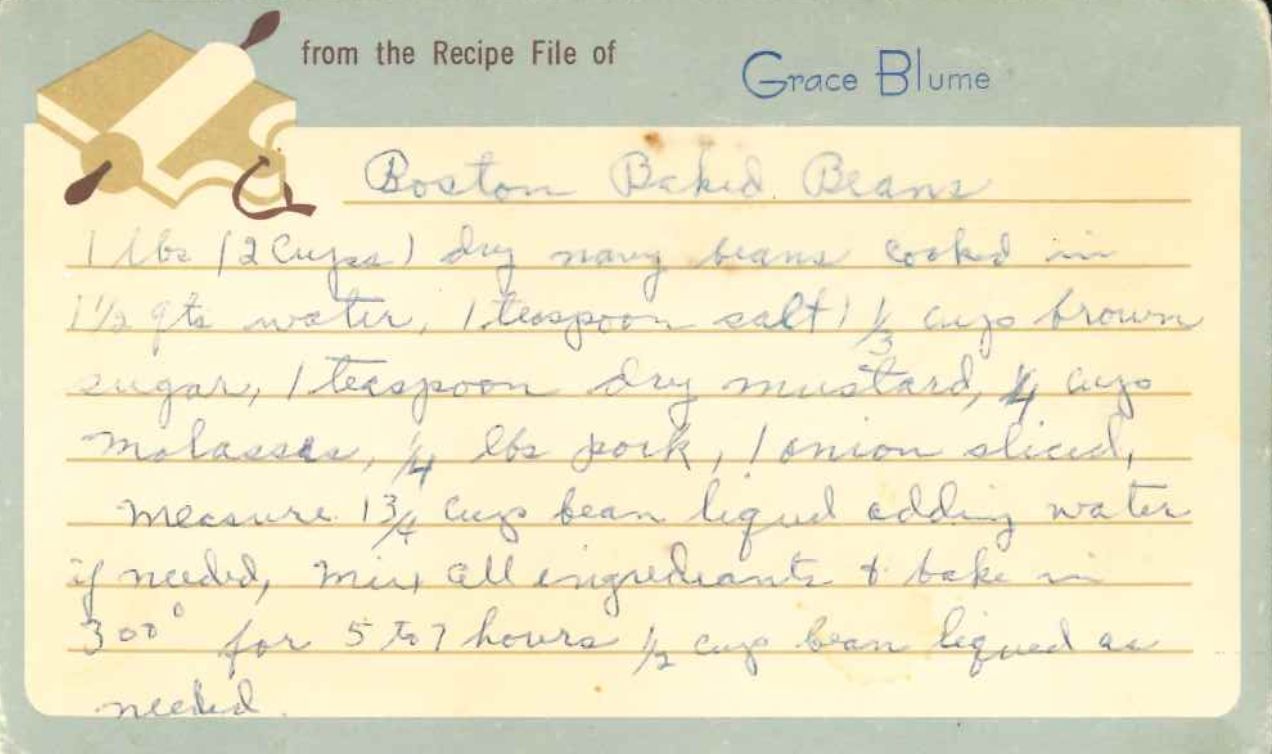 from the Recipe File of
Grace Blume
Boston Baked Beans
1 lbs (2 Cups) dry navy beans cooked in
1 1/2 qts water, 1 teaspoon salt, 1/3 cup brown
sugar, 1 teaspoon dry mustard, 1/4 cup
molasses, 1/4 lbs pork, 1 onion sliced,
measure 1 3/4 cup bean liqued adding water
if needed, mix all ingrediants & bake in
300° for 5 to 7 hours 1/2 cup bean liqued as
needed.